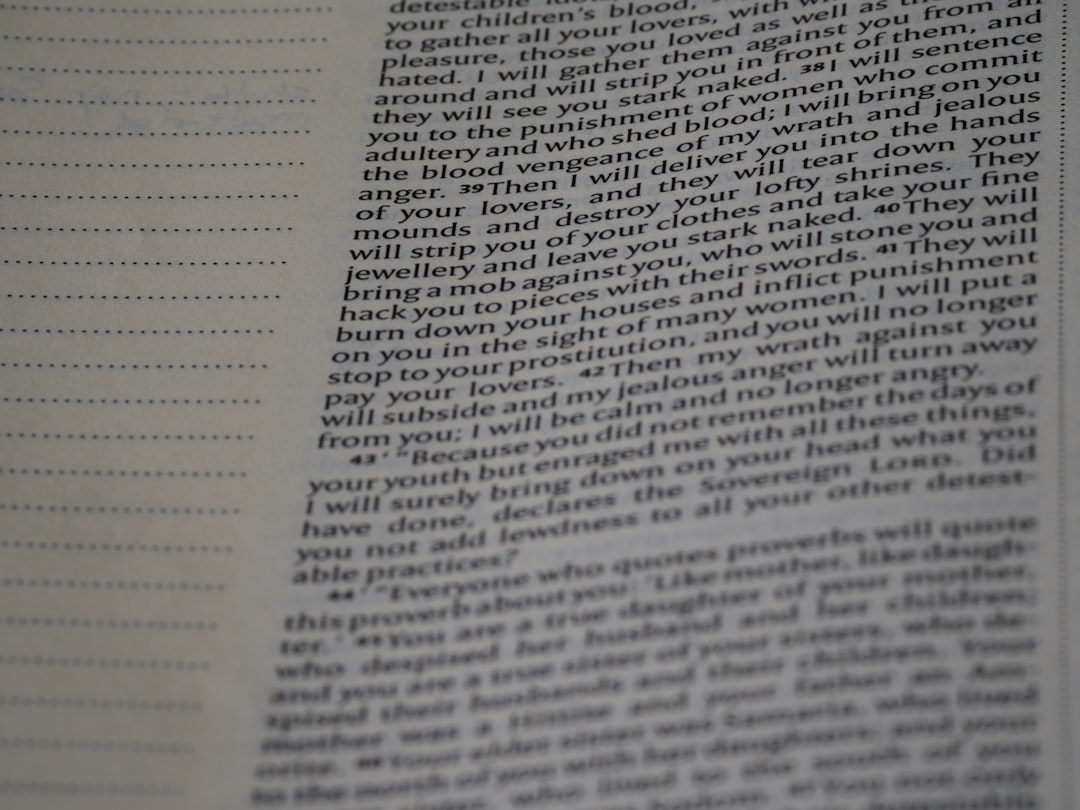 detestable idols,
your children's blood,
to gather all your lovers, with
pleasure, those you loved as well as
hated. I will gather them against you from all
around and will strip you in front of them, and
they will see you stark naked. 38 I will sentence
you to the punishment of women who commit
adultery and who shed blood; I will bring on you
the blood vengeance of my wrath and jealous
anger. 39 Then I will deliver you into the hands
of your lovers, and they will tear down your
mounds and destroy your lofty shrines. They
will strip you of your clothes and take your fine
jewellery and leave you stark naked. 40 They will
bring a mob against you, who will stone you and
hack you to pieces with their swords. 41 They will
burn down your houses and inflict punishment
on you in the sight of many women. I will put a
stop to your prostitution, and you will no longer
pay your lovers. 42 Then my wrath against you
will subside and my jealous anger will turn away
from you; I will be calm and no longer angry.
43 ‘ “Because you did not remember the days of
your youth but enraged me with all these things,
I will surely bring down on your head what you
have done, declares the Sovereign LORD. Did
you not add lewdness to all your other detest-
able practices?
44 ‘ “Everyone who quotes proverbs will quote
this proverb about you: ‘Like mother, like daugh-
ter.’ 45 You are a true daughter of your mother,
who despised her husband and her children;
and you are a true sister of your sisters, who de-
spised their husbands and their children. Your
mother was a Hittite and your father an Am-
orite. 46 Your older sister was Samaria, who lived
to the north of you with her daughters; and your
who lived to the south of you